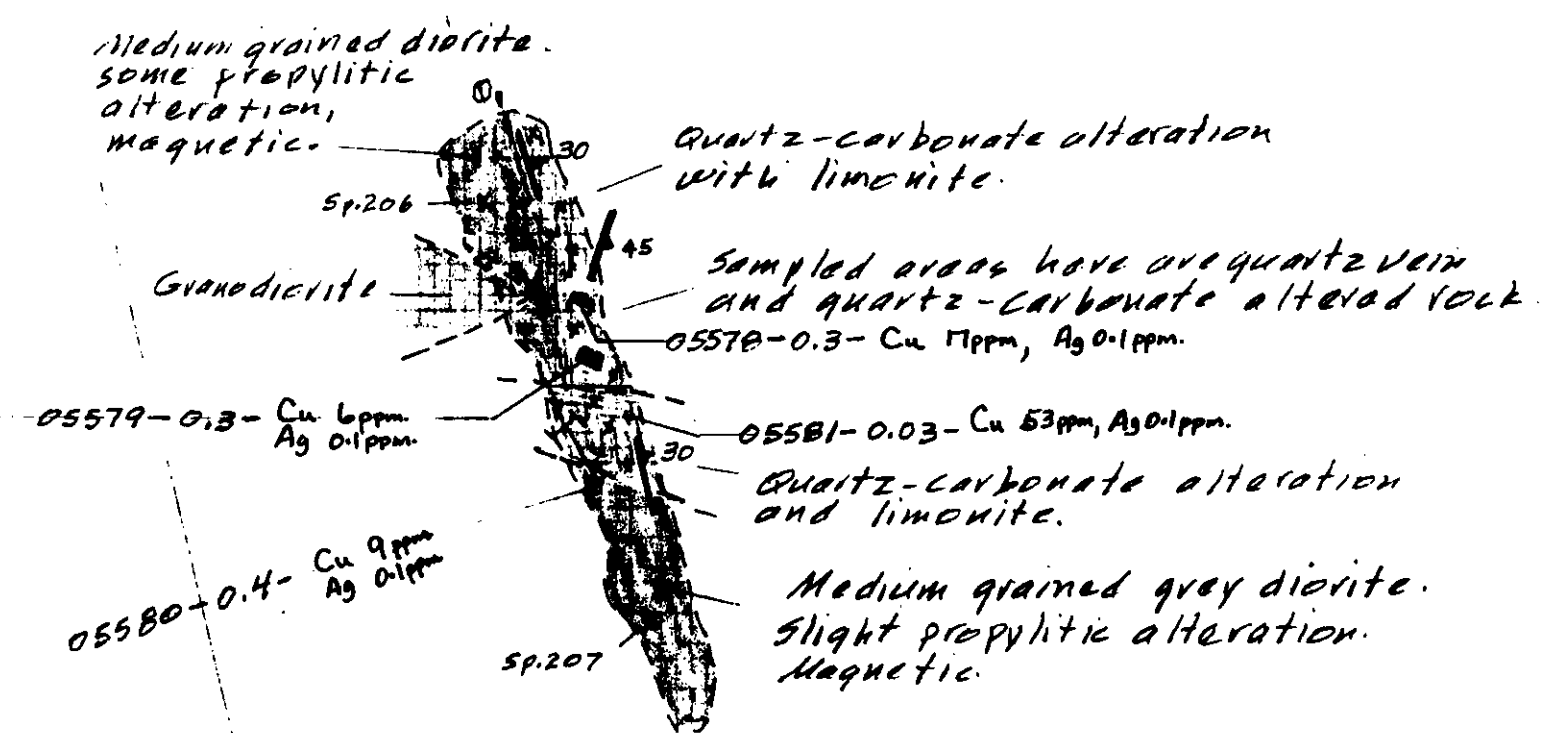 Medium grained diorite.
some propylitic
alteration,
magnetic.
30
Quartz-carbonate alteration
with limonite.
Sp.206
45
Granodiorite
Sampled areas have quartz vein
and quartz-carbonate altered rock
05578-0.3- Cu 17ppm, Ag 0.1ppm.
05579-0.3- Cu 6ppm.
Ag 0.1ppm.
05581-0.03- Cu 53ppm, Ag 0.1ppm.
30
Quartz-carbonate alteration
and limonite.
05580-0.4- Cu 9ppm
Ag 0.1ppm
Medium grained grey diorite.
Slight propylitic alteration.
Magnetic.
Sp.207